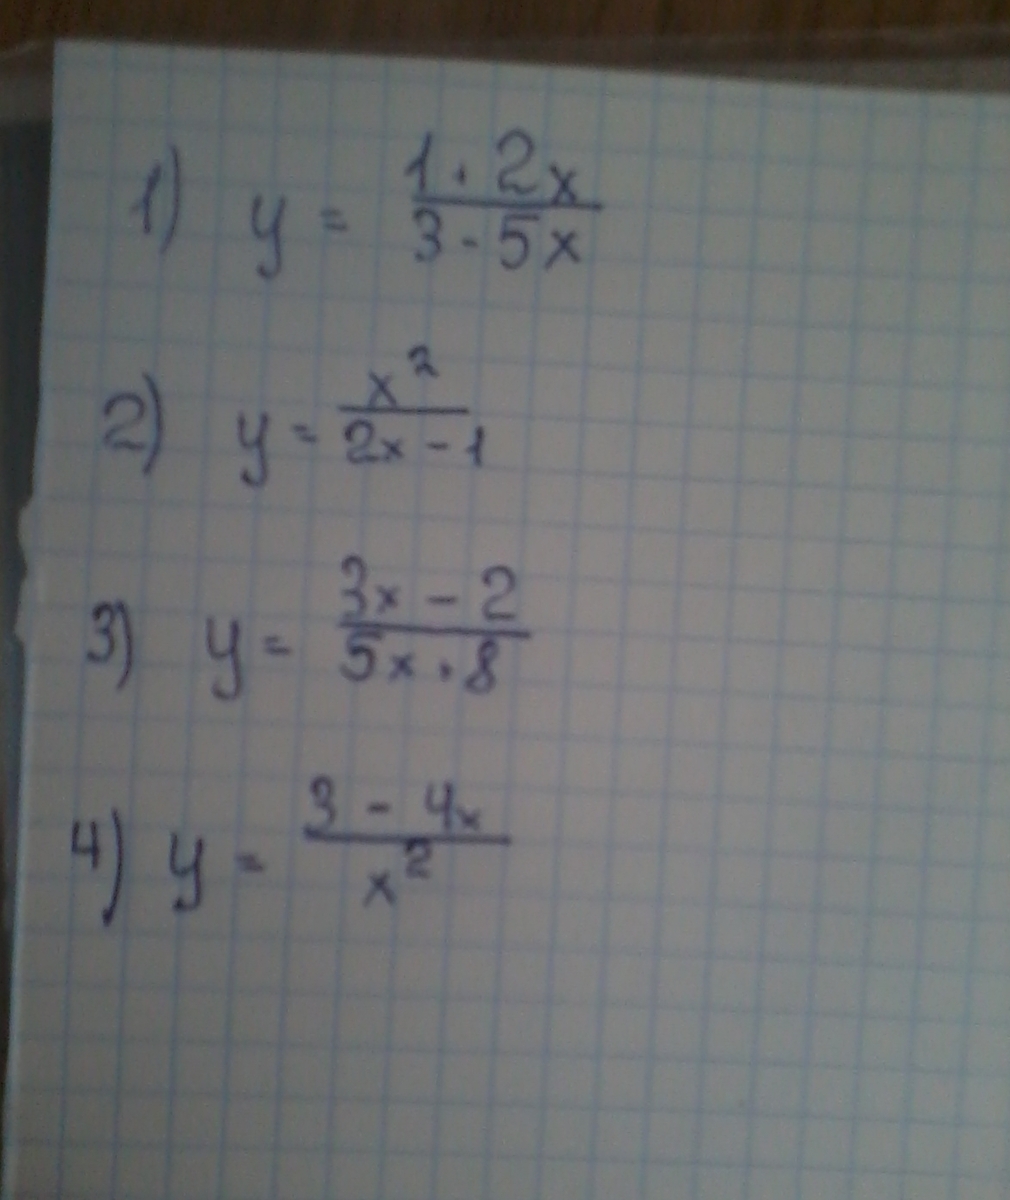 1) y = (1 · 2x)/(3 - 5x)
2) y = x²/(2x - 1)
3) y = (3x - 2)/(5x · 8)
4) y = (3 - 4x)/x²